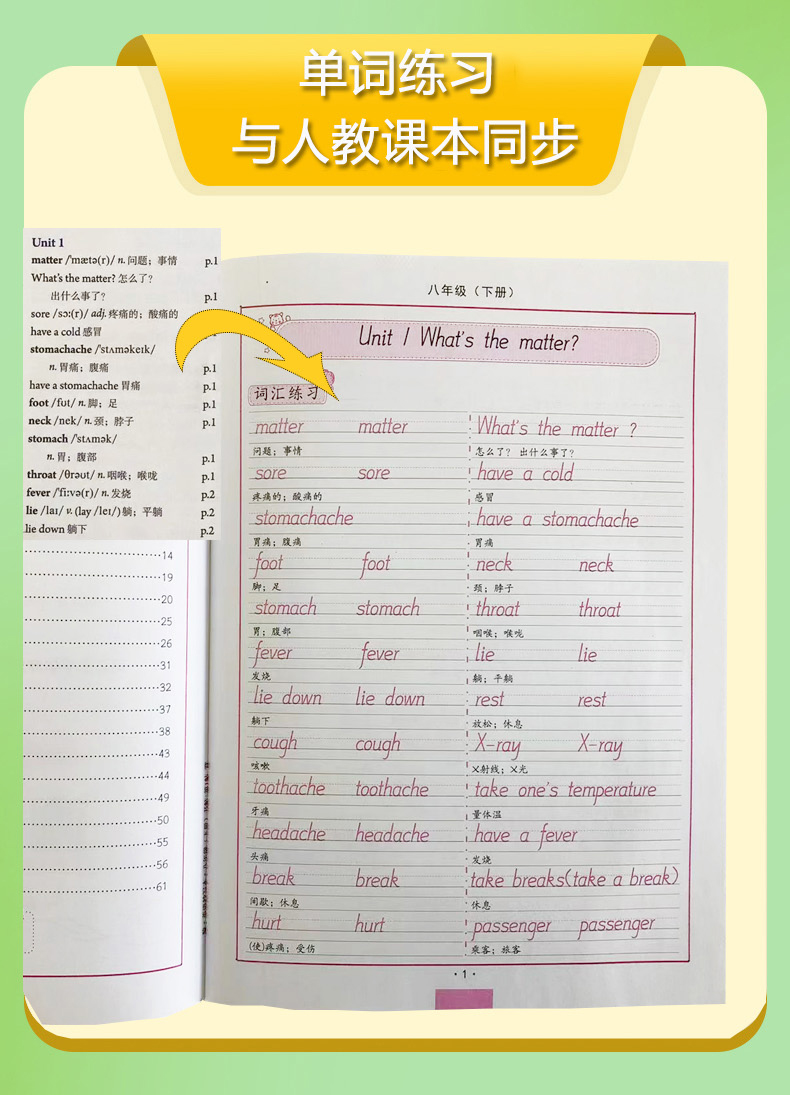 单词练习
与人教课本同步
Unit 1
matter /'mætə(r)/ n. 问题；事情 p.1
What's the matter? 怎么了？
出什么事了？ p.1
sore /sɔː(r)/ adj. 疼痛的；酸痛的
have a cold 感冒
stomachache /'stʌməkeɪk/
n. 胃痛；腹痛 p.1
have a stomachache 胃痛 p.1
foot /fʊt/ n. 脚；足 p.1
neck /nek/ n. 颈；脖子 p.1
stomach /'stʌmək/
n. 胃；腹部 p.1
throat /θrəʊt/ n. 咽喉；喉咙 p.1
fever /'fiːvə(r)/ n. 发烧 p.2
lie /laɪ/ v. (lay /leɪ/) 躺；平躺 p.2
lie down 躺下 p.2
14
19
20
25
26
31
32
37
38
43
44
49
50
55
56
61
八年级（下册）
Unit 1 What's the matter?
词汇练习
matter matter What's the matter ?
问题；事情 怎么了？ 出什么事了？
sore sore have a cold
疼痛的；酸痛的 感冒
stomachache have a stomachache
胃痛；腹痛 胃痛
foot foot neck neck
脚；足 颈；脖子
stomach stomach throat throat
胃；腹部 咽喉；喉咙
fever fever lie lie
发烧 躺；平躺
lie down lie down rest rest
躺下 放松；休息
cough cough X-ray X-ray
咳嗽 X射线；X光
toothache toothache take one's temperature
牙痛 量体温
headache headache have a fever
头痛 发烧
break break take breaks(take a break)
间歇；休息 休息
hurt hurt passenger passenger
(使)疼痛；受伤 乘客；旅客
·1·